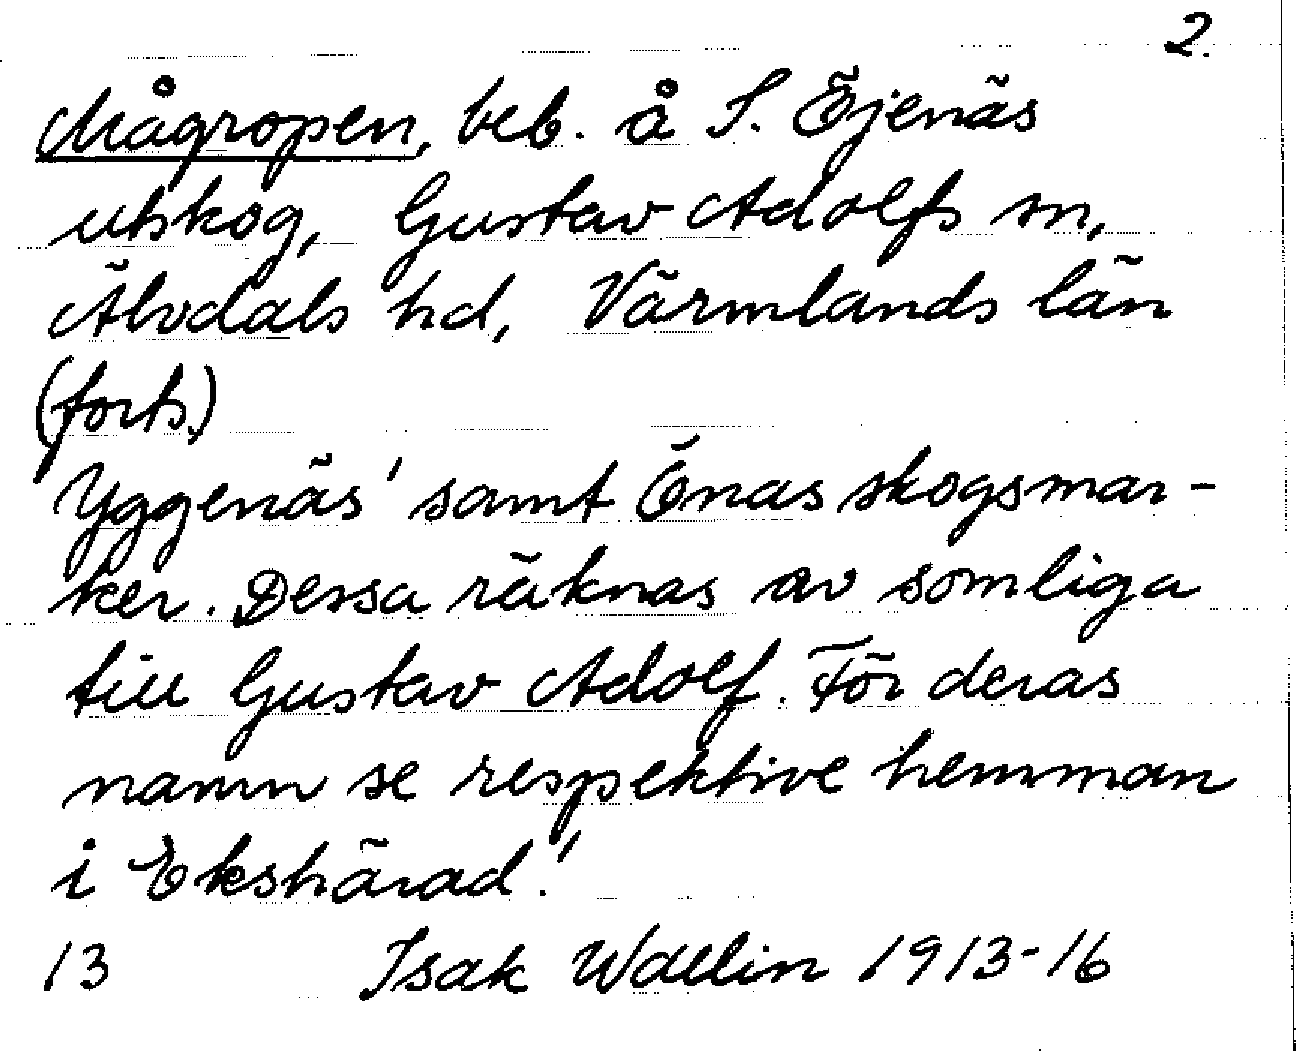 2.
Mågropen, beb. å S. Öjenäs
utskog, Gustav Adolfs sn,
Älvdals hd, Värmlands län
(forts.)
Yggenäs' samt Önas skogsmar-
ker. Dessa räknas av somliga
till Gustav Adolf. För deras
namn se respektive hemman
i Ekshärad.'
13 Isak Wallin 1913-16